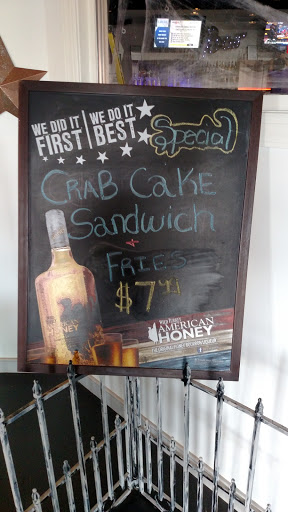 WE DID IT FIRST
WE DO IT BEST
Special
CRAB CAKE
Sandwich
+
FRIES
$7
WILD TURKEY
AMERICAN
HONEY